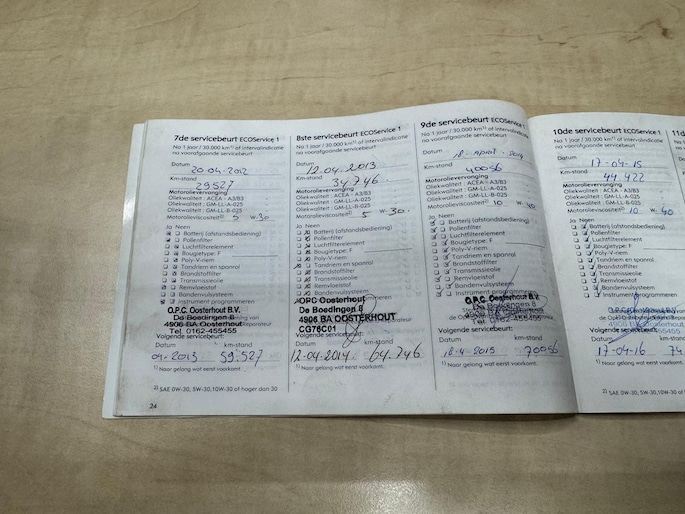 7de servicebeurt ECOService 1
Na 1 jaar / 30.000 km¹⁾ of intervalindicatie
na voorafgaande servicebeurt
Datum
20-04-2012
Km-stand
29.527
Motorolievervanging
Oliekwaliteit : ACEA - A3/B3
Oliekwaliteit : GM-LL-A-025
Oliekwaliteit : GM-LL-B-025
Motorolieviscositeit²⁾ 5 W- 30
Ja Neen
Batterij (afstandsbediening)
Pollenfilter
Luchtfilterelement
Bougietype: F
Poly-V-riem
Tandriem en spanrol
Brandstoffilter
Transmissieolie
Remvloeistof
Bandenvulsysteem
Instrument programmeren
O.P.C. Oosterhout B.V.
De Boedingen 8
4906 BA Oosterhout
Tel. 0162-455455
Volgende servicebeurt:
Datum km-stand
04-2013 59.527
¹⁾ Naar gelang wat eerst voorkomt.
²⁾ SAE 0W-30, 5W-30,10W-30 of hoger dan 30
24
8ste servicebeurt ECOService 1
Na 1 jaar / 30.000 km¹⁾ of intervalindicatie
na voorafgaande servicebeurt
Datum
12.04.2013
Km-stand 34.746
Motorolievervanging
Oliekwaliteit : ACEA - A3/B3
Oliekwaliteit : GM-LL-A-025
Oliekwaliteit : GM-LL-B-025
Motorolieviscositeit²⁾ 5 W- 30.
Ja Neen
Batterij (afstandsbediening)
Pollenfilter
Luchtfilterelement
Bougietype: F
Poly-V-riem
Tandriem en spanrol
Brandstoffilter
Transmissieolie
Remvloeistof
Bandenvulsysteem
Instrument programmeren
OPC Oosterhout
De Boedingen 8
4906 BA OOSTERHOUT
CG76C01
Volgende servicebeurt:
Datum km-stand
12-04-2014 64.746
¹⁾ Naar gelang wat eerst voorkomt.
9de servicebeurt ECOService 1
Na 1 jaar / 30.000 km¹⁾ of intervalindicatie
na voorafgaande servicebeurt
Datum
18 - april - 2014
Km-stand
40056
Motorolievervanging
Oliekwaliteit : ACEA - A3/B3
Oliekwaliteit : GM-LL-A-025
Oliekwaliteit : GM-LL-B-025
Motorolieviscositeit²⁾ 10 W- 40
Ja Neen
Batterij (afstandsbediening)
Pollenfilter
Luchtfilterelement
Bougietype: F
Poly-V-riem
Tandriem en spanrol
Brandstoffilter
Transmissieolie
Remvloeistof
Bandenvulsysteem
Instrument programmeren
O.P.C. Oosterhout B.V.
Volgende servicebeurt:
Datum km-stand
18-4-2015 70056
¹⁾ Naar gelang wat eerst voorkomt.
10de servicebeurt ECOService 1
Na 1 jaar / 30.000 km¹⁾ of intervalindicatie
na voorafgaande servicebeurt
Datum
17-04-15
Km-stand
44.422
Motorolievervanging
Oliekwaliteit : ACEA - A3/B3
Oliekwaliteit : GM-LL-A-025
Oliekwaliteit : GM-LL-B-025
Motorolieviscositeit²⁾ 10 W- 40
Ja Neen
Batterij (afstandsbediening)
Pollenfilter
Luchtfilterelement
Bougietype: F
Poly-V-riem
Tandriem en spanrol
Brandstoffilter
Transmissieolie
Remvloeistof
Bandenvulsysteem
Instrument programmeren
Volgende servicebeurt:
Datum km-stand
17-04-16 74
¹⁾ Naar gelang wat eerst voorkomt.
²⁾ SAE 0W-30, 5W-30,10W-30 of